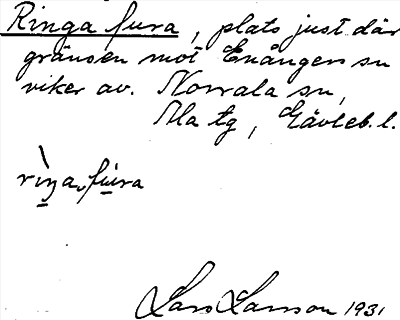 Ringa fura, plats just där
gränsen mot Enångers sn
viker av. Norrala sn,
Ala tg, Gävleb. l.
rìŋa fúra
Lars Larsson 1931